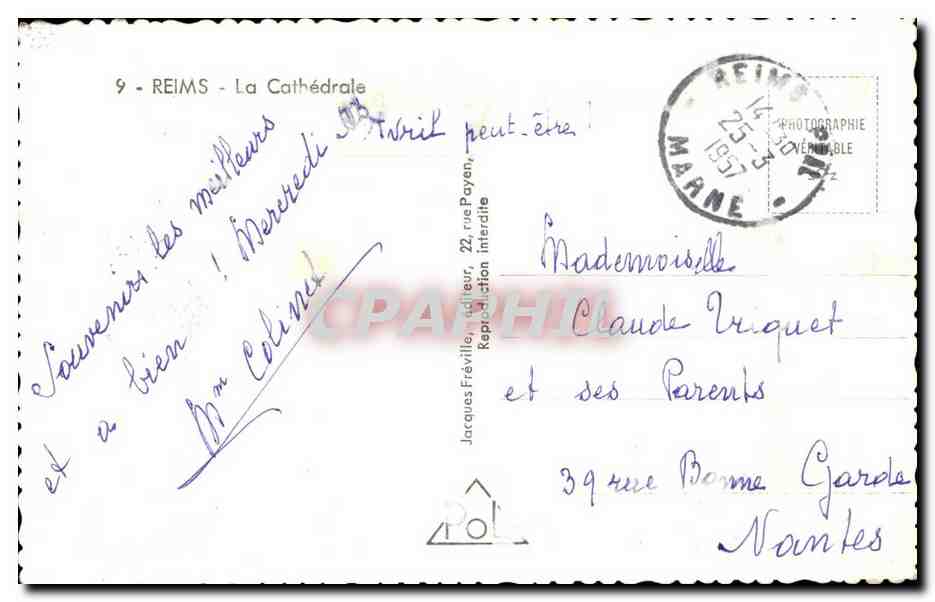 9 - REIMS - La Cathédrale
Souvenirs les meilleurs
et à bien ! Mercredi 3 Avril peut-être !
Mm Colinet
Jacques Fréville, éditeur, 22, rue Payen,
Reproduction interdite
REIMS
14 30
25-3
1957
MARNE
PHOTOGRAPHIE
VÉRITABLE
Mademoiselle
Claude Triquet
et ses Parents
39 rue Bonne Garde
Nantes
CPAPHIL